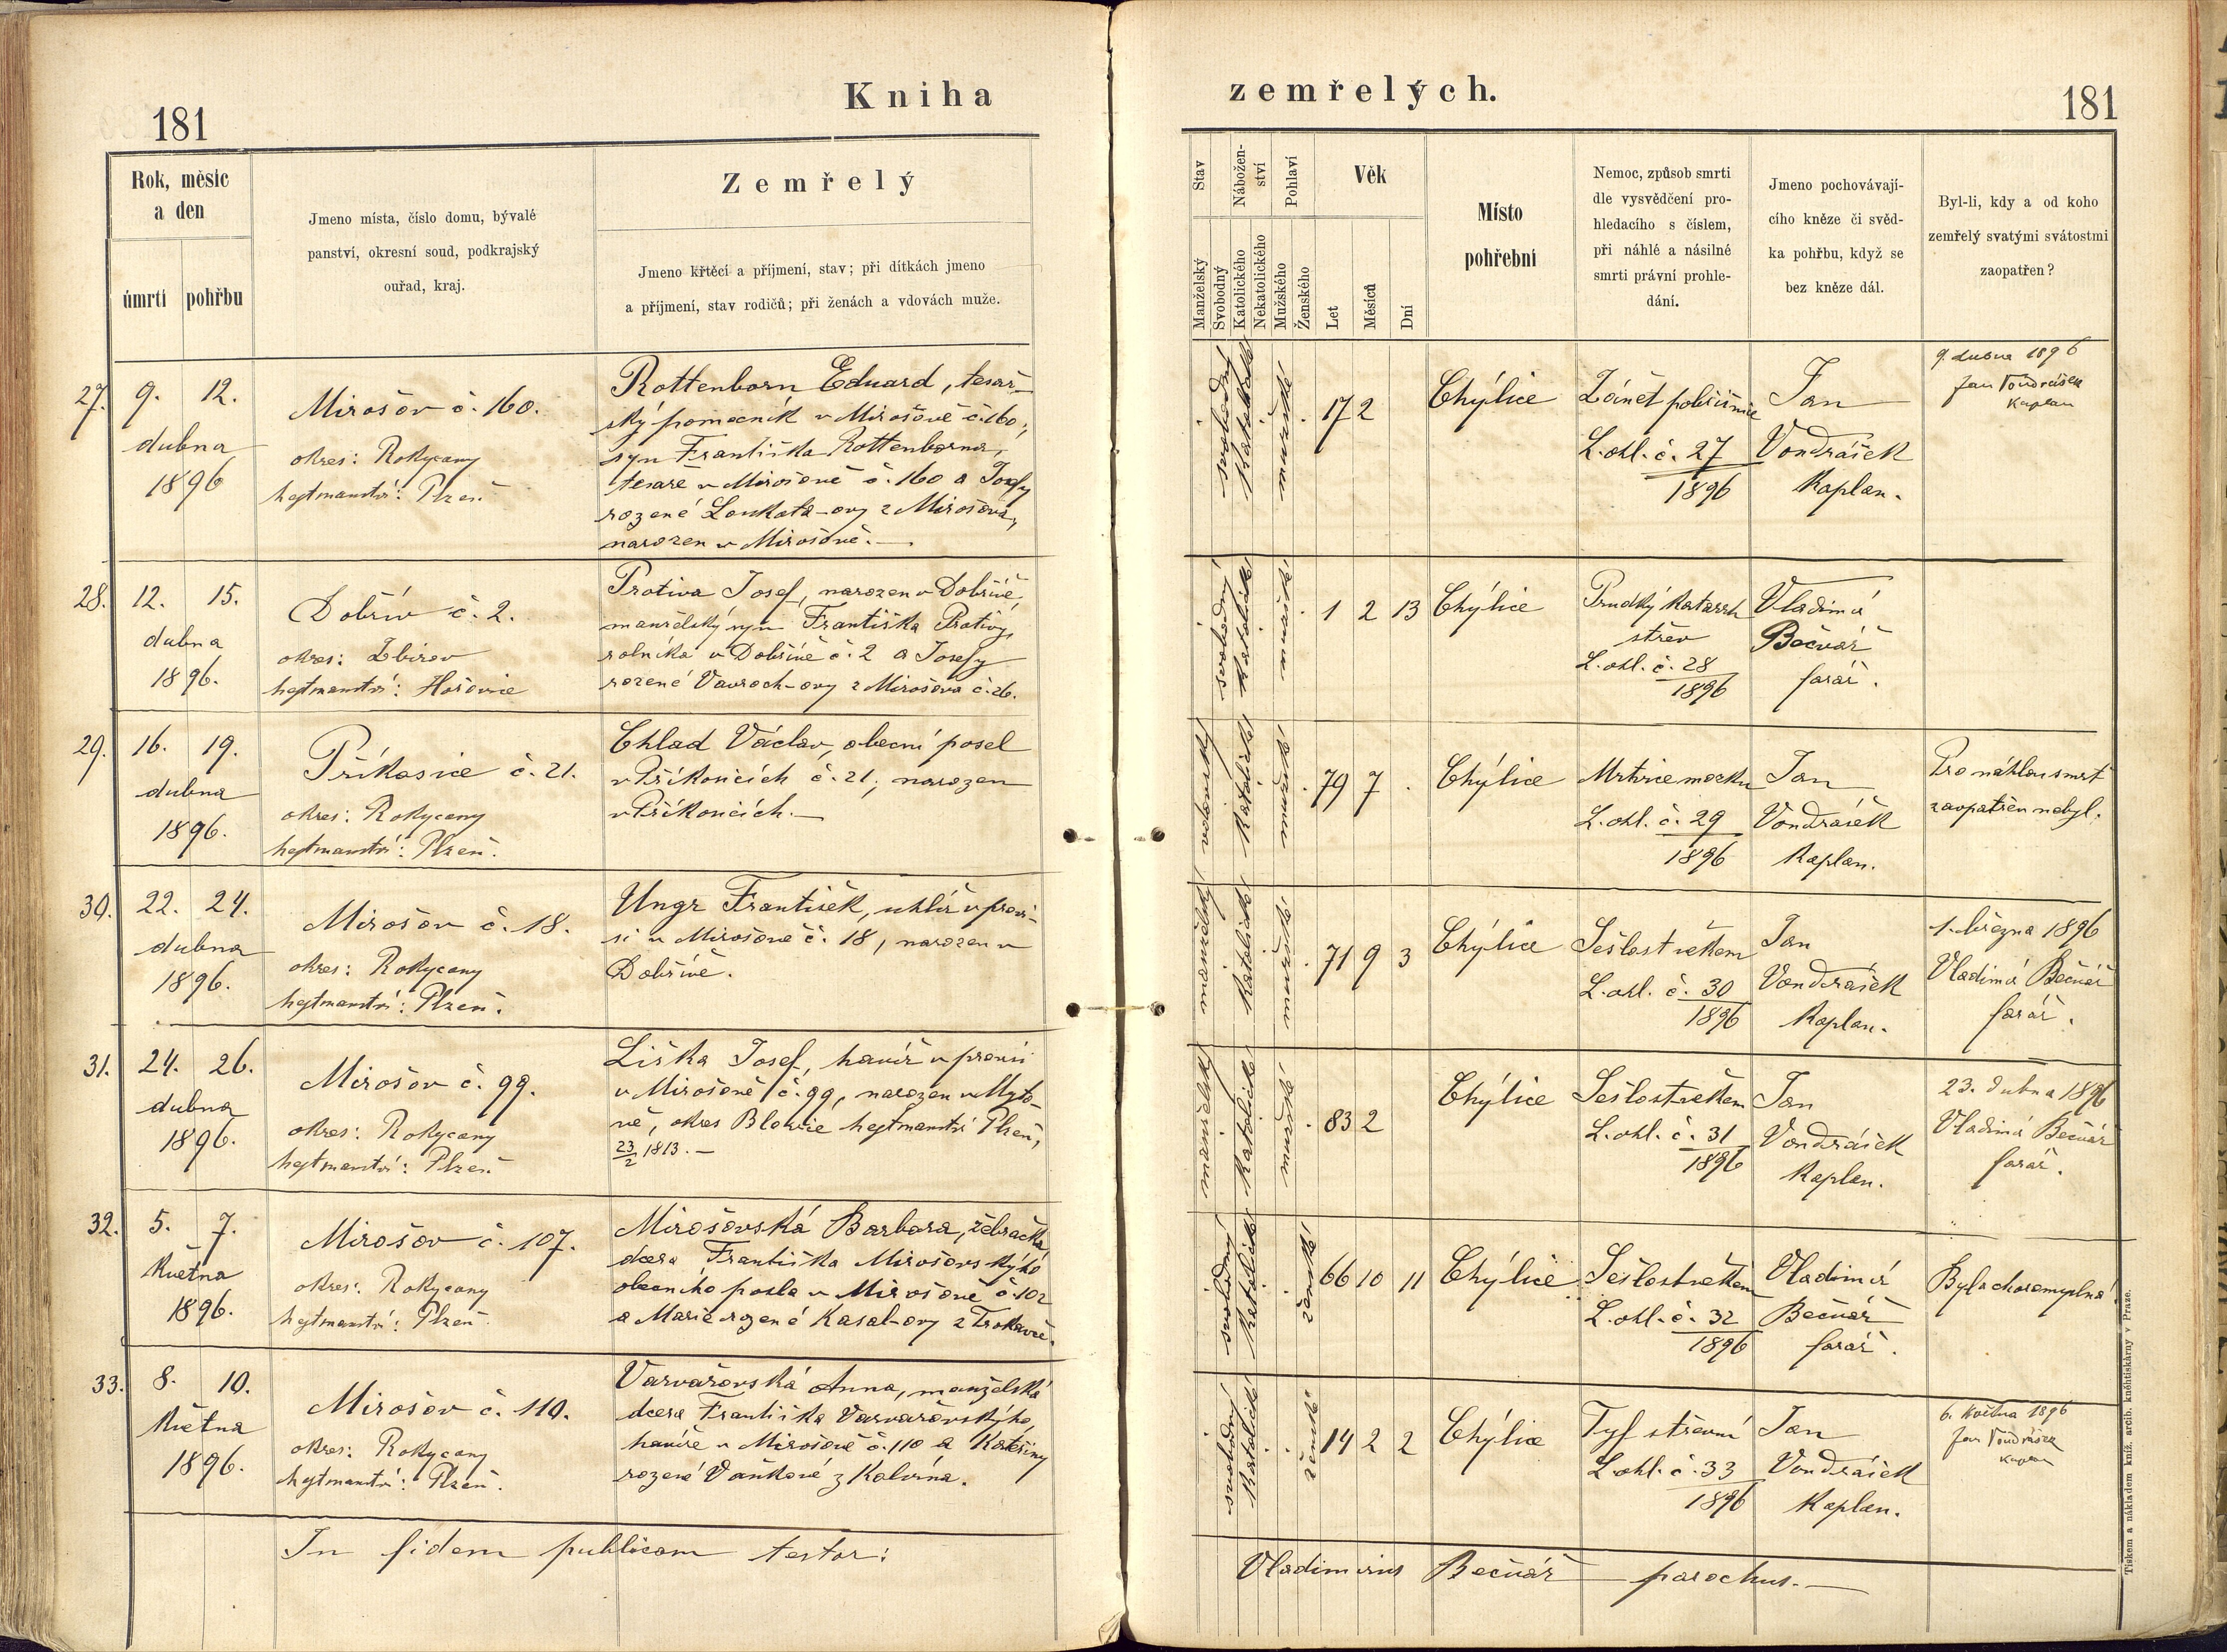 181
Kniha
zemřelých.
181
Rok, měsíc
a den
úmrtí
pohřbu
Jmeno místa, číslo domu, bývalé
panství, okresní soud, podkrajský
ouřad, kraj.
Zemřelý
Jmeno křtěcí a příjmení, stav; při dítkách jmeno
a příjmení, stav rodičů; při ženách a vdovách muže.
Stav
Manželský
Svobodný
Nábožen-
ství
Katolického
Nekatolického
Pohlaví
Mužského
Ženského
Věk
Let
Měsíců
Dní
Místo
pohřební
Nemoc, způsob smrti
dle vysvědčení pro-
hledacího s číslem,
při náhlé a násilné
smrti právní prohle-
dání.
Jmeno pochovávají-
cího kněze či svěd-
ka pohřbu, když se
bez kněze dál.
Byl-li, kdy a od koho
zemřelý svatými svátostmi
zaopatřen?
27.
9. 12.
dubna
1896
Mirošov č. 160.
okres: Rokycany
hejtmanství: Plzeň
Rottenborn Eduard, tesař-
ský pomocník v Mirošově č. 160,
syn Františka Rottenborna,
tesaře v Mirošově č. 160 a Josefy
rozené Loukota-ovy z Mirošova,
narozen v Mirošově.
svobodný
katolické
mužské
17 2
Chýlice
Zánět pobřišnice
L. ohl. č. 27
1896
Jan
Vondrášek
Kaplan.
9. dubna 1896
Jan Vondrášek
kaplan
28.
12. 15.
dubna
1896.
Dobřív č. 2.
okres: Zbirov
hejtmanství: Hořovice
Protiva Josef, narozen v Dobřívě,
manželský syn Františka Protivy,
rolníka v Dobřívě č. 2 a Josefy
rozené Vavroch-ovy z Mirošova č. 26.
svobodný
katolické
mužské
1 2 13
Chýlice
Prudký katarrh
střev
L. ohl. č. 28
1896
Vladimír
Bečvář
farář.
29.
16. 19.
dubna
1896.
Příkosice č. 21.
okres: Rokycany
hejtmanství: Plzeň.
Chlad Václav, obecní posel
v Příkosicích č. 21, narozen
v Příkosicích.
vdovský
katolické
mužské
79 7
Chýlice
Mrtvice mozku
L. ohl. č. 29
1896
Jan
Vondrášek
Kaplan.
Pro náhlou smrt
zaopatřen nebyl.
30.
22. 24.
dubna
1896.
Mirošov č. 18.
okres: Rokycany
hejtmanství: Plzeň.
Ungr František, uhlíř v provi-
si v Mirošově č. 18, narozen v
Dobřívě.
manželský
katolické
mužské
71 9 3
Chýlice
Sešlost věkem
L. ohl. č. 30
1896
Jan
Vondrášek
Kaplan.
1. března 1896
Vladimír Bečvář
farář.
31.
24. 26.
dubna
1896.
Mirošov č. 99.
okres: Rokycany
hejtmanství: Plzeň
Liška Josef, havíř v provisi
v Mirošově č. 99, narozen v Myto-
vě, okres Blovice hejtmanství Plzeň,
23/2 1813.
manželský
katolické
mužské
83 2
Chýlice
Sešlost věkem
L. ohl. č. 31
1896
Jan
Vondrášek
Kaplan.
23. dubna 1896
Vladimír Bečvář
farář.
32.
5. 7.
Května
1896.
Mirošov č. 107.
okres: Rokycany
hejtmanství: Plzeň
Mirošovská Barbora, žebračka,
dcera Františka Mirošovského
obecního posla v Mirošově č. 102
a Marie rozené Kasal-ovy z Trokavce.
svobodný
katolické
ženské
66 10 11
Chýlice
Sešlost věkem
L. ohl. č. 32
1896
Vladimír
Bečvář
farář.
Byla choromyslná.
33.
8. 10.
Května
1896.
Mirošov č. 110.
okres: Rokycany
hejtmanství: Plzeň.
Varvařovská Anna, manželská
dcera Františka Varvařovského,
havíře v Mirošově č. 110 a Kateřiny
rozené Vaňkové z Kolvína.
svobodný
katolické
ženské
14 2 2
Chýlice
Tyf střevní
L. ohl. č. 33
1896
Jan
Vondrášek
Kaplan.
6. května 1896
Jan Vondrášek
kaplan
In fidem publicam testor:
Vladimirus Bečvář parochus.
Tiskem a nákladem kníž. arcib. kněhtiskárny v Praze.